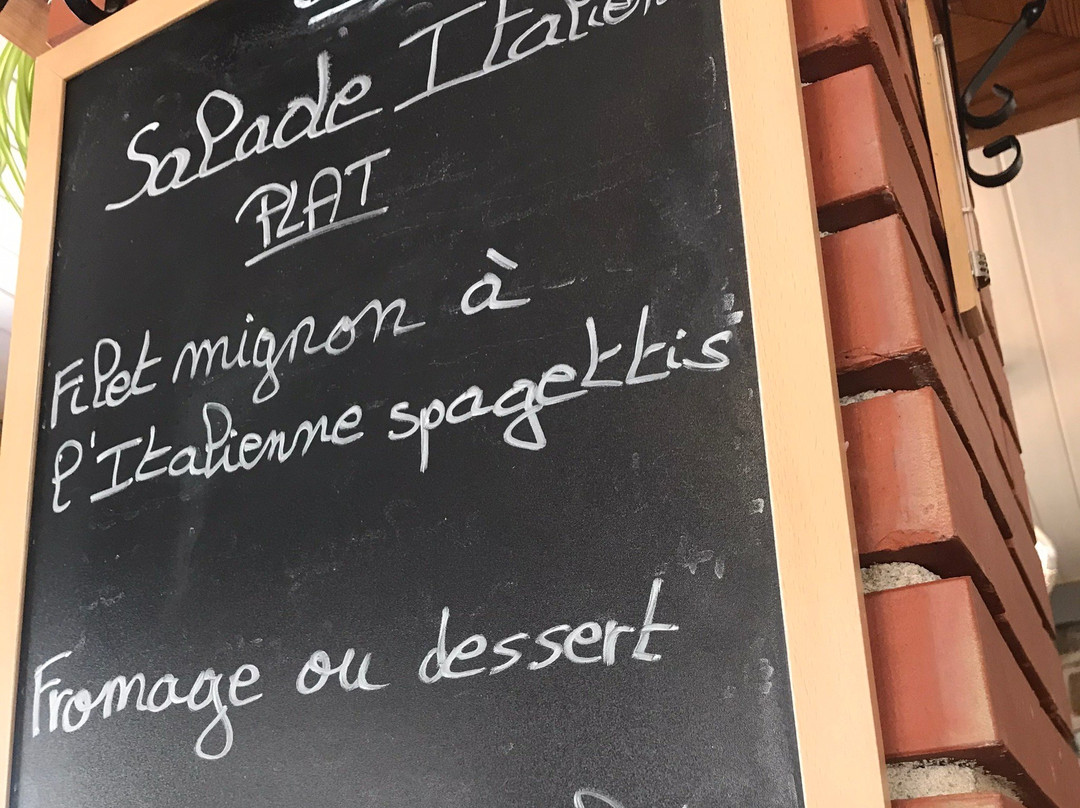 Salade
PLAT
Filet mignon à
l'Italienne spagettis
Fromage ou dessert